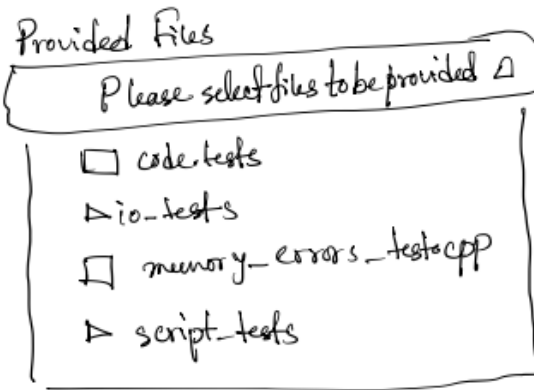 Provided Files
Please select files to be provided
code.tests
io_tests
memory_errors_test.cpp
script_tests